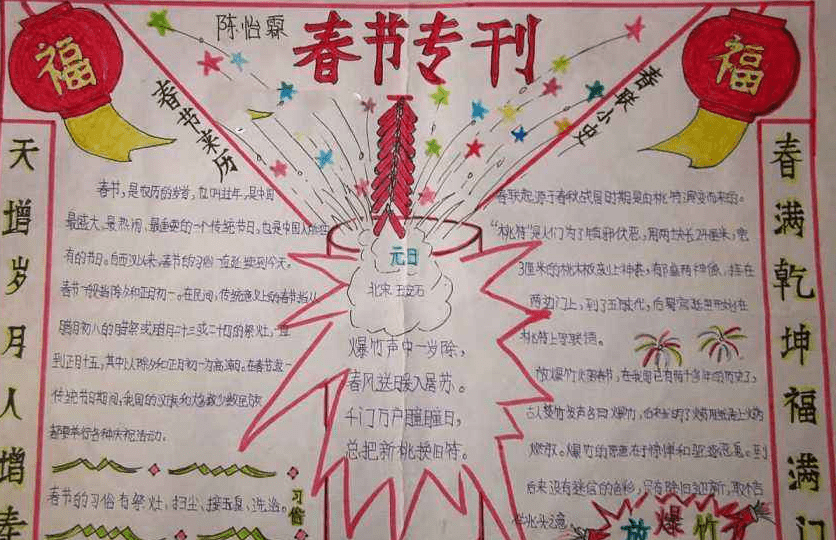 陈怡霖
春节专刊
福
福
春节来历
春联小史
天增岁月人增寿
春满乾坤福满门
春节,是农历的岁首,也叫过年,是中国
最盛大、最热闹、最重要的一个传统节日,也是中国人
有的节日。自西汉以来,春节的习俗一直延续到今天。
春节一般指除夕和正月初一。在民间,传统意义上的春节指从
腊月初八的腊祭或腊月二十三或二十四的祭灶,一直
到正月十五,其中以除夕和正月初一为高潮。在春节这一
传统节日期间,我国的汉族和大多数少数民族
都要举行各种庆祝活动。
春节的习俗有祭灶、扫尘、接玉皇、洗浴。
习俗
元日
北宋 王安石
爆竹声中一岁除,
春风送暖入屠苏。
千门万户瞳瞳日,
总把新桃换旧符。
春联起源于春秋战国时期是由桃符演变而来的。
“桃符”是人们为了镇邪伏恶,用两块长
3厘米的桃木板画上神荼,郁垒两神像,挂在
两边门上,到了五代,后蜀宫
桃符上写联语。
放爆竹火迎春节,在我国已有两千多年的历史了,
古人焚竹发声名曰爆竹,后来
燃放。爆竹的原意在于惊惮和驱逐恶鬼。到
后来没有迷信的色彩,只有除旧迎新,取个吉
祥兆头之意。
放爆竹